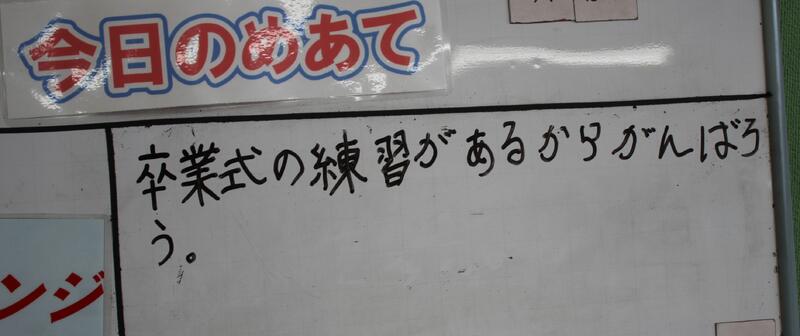 今日のめあて
卒業式の練習があるからがんばろ
う。
ンジ